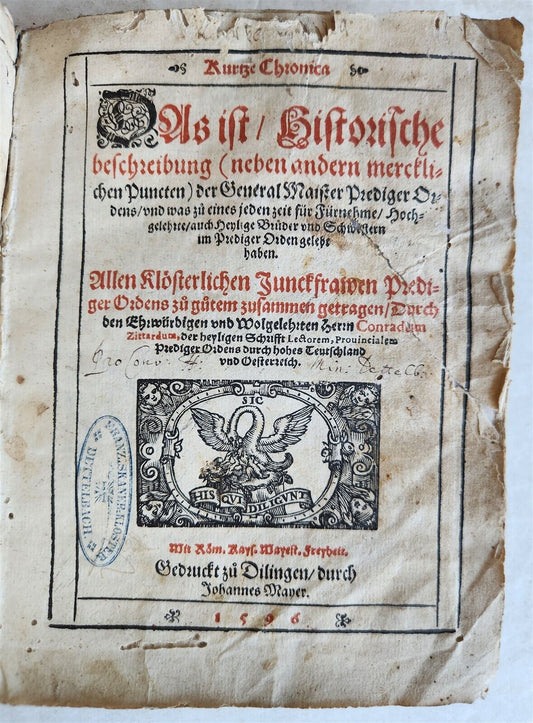 Kurtze Chronica
DAs ist / Historische
beschreibung (neben andern merckli-
chen Puncten) der General Maister Prediger Or-
dens / vnd was zů eines jeden zeit für Fürnehme / Hoch-
gelehrte / auch Heylige Brüder vnd Schwestern
im Prediger Orden gelebt
haben.
Allen Klösterlichen Junckfrawen Predi-
ger Ordens zů gůtem zusammen getragen / Durch
den Ehrwürdigen vnd Wolgelehrten Herrn Conradum
Zittardum, der heyligen Schrifft Lectorem, Prouincialem
Prediger Ordens durch hohes Teutschland
vnd Oesterreich.
Pro Conv: F. Min: Dettelb:
SIC
HIS QVI DILIGVNT
FRANZISKANERKLOSTER
DETTELBACH
Mit Röm. Kays. Mayest. Freyheit.
Gedruckt zů Dilingen / durch
Johannes Mayer.
1596